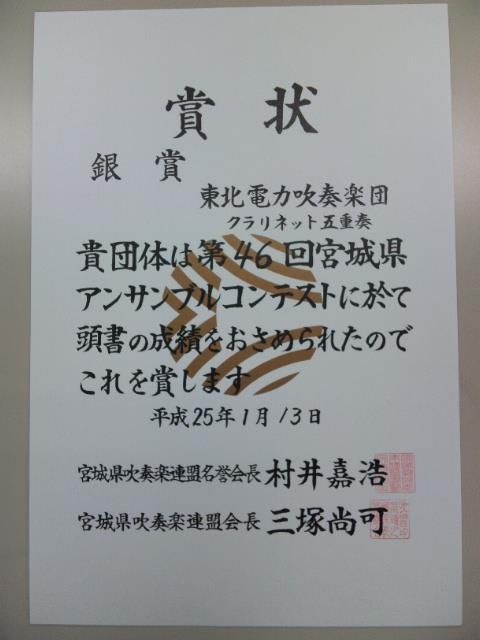 賞状
銀賞
東北電力吹奏楽団
クラリネット五重奏
貴団体は第46回宮城県
アンサンブルコンテストに於て
頭書の成績をおさめられたので
これを賞します
平成25年1月13日
宮城県吹奏楽連盟名誉会長 村井嘉浩
宮城県吹奏楽連盟会長 三塚尚可